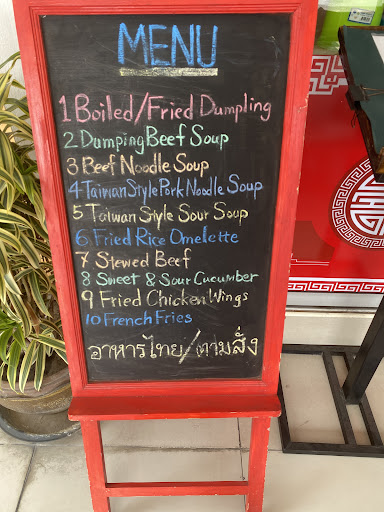 MENU
1 Boiled/Fried Dumpling
2 Dumping Beef Soup
3 Beef Noodle Soup
4 Taiwan Style Pork Noodle Soup
5 Taiwan Style Sour Soup
6 Fried Rice Omelette
7 Stewed Beef
8 Sweet & Sour Cucumber
9 Fried Chicken Wings
10 French Fries
อาหารไทย/ตามสั่ง